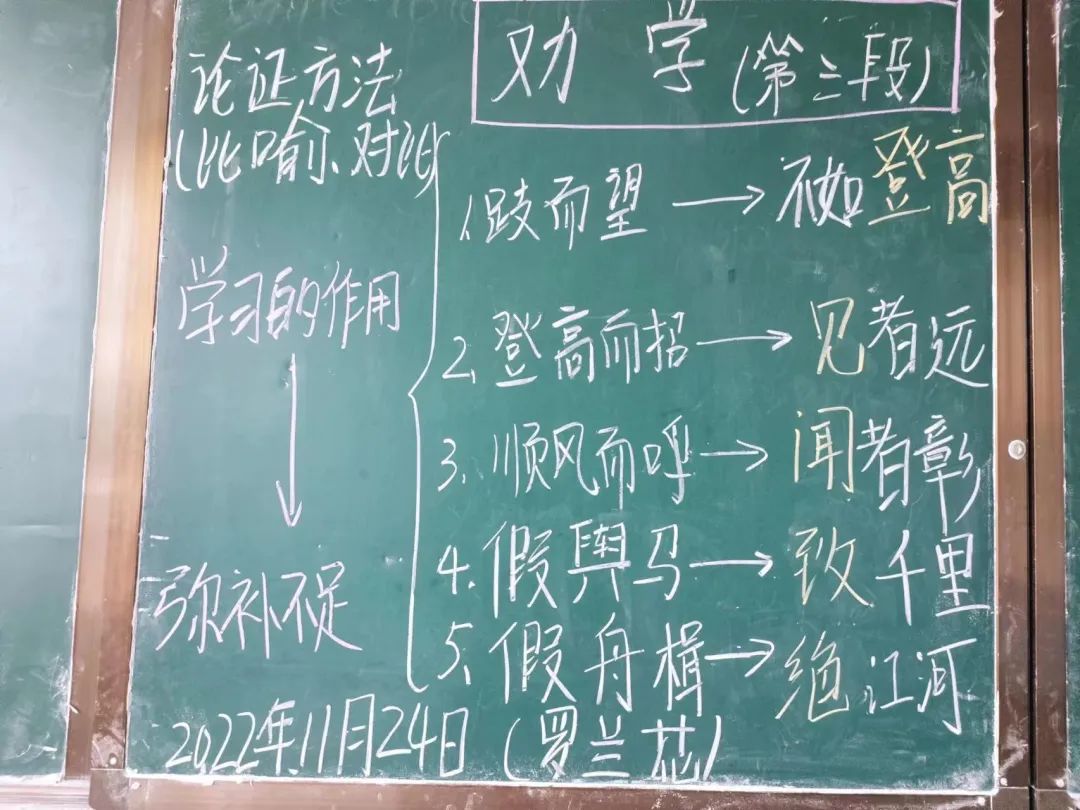 劝 学(第三段)
论证方法
(比喻、对比)
学习的作用
弥补不足
1.跂而望→不如登高
2.登高而招→见者远
3.顺风而呼→闻者彰
4.假舆马→致千里
5.假舟楫→绝江河
2022年11月24日(罗兰芯)